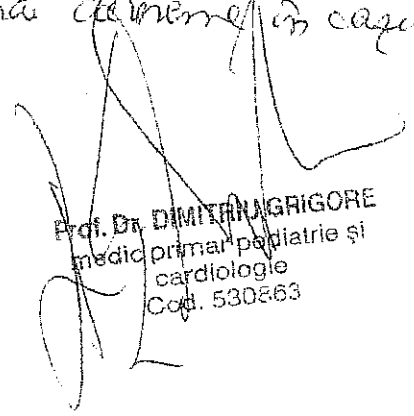 în
Prof. Dr. DIMITRIU GRIGORE
medic primar pediatrie și
cardiologie
Cod. 530863